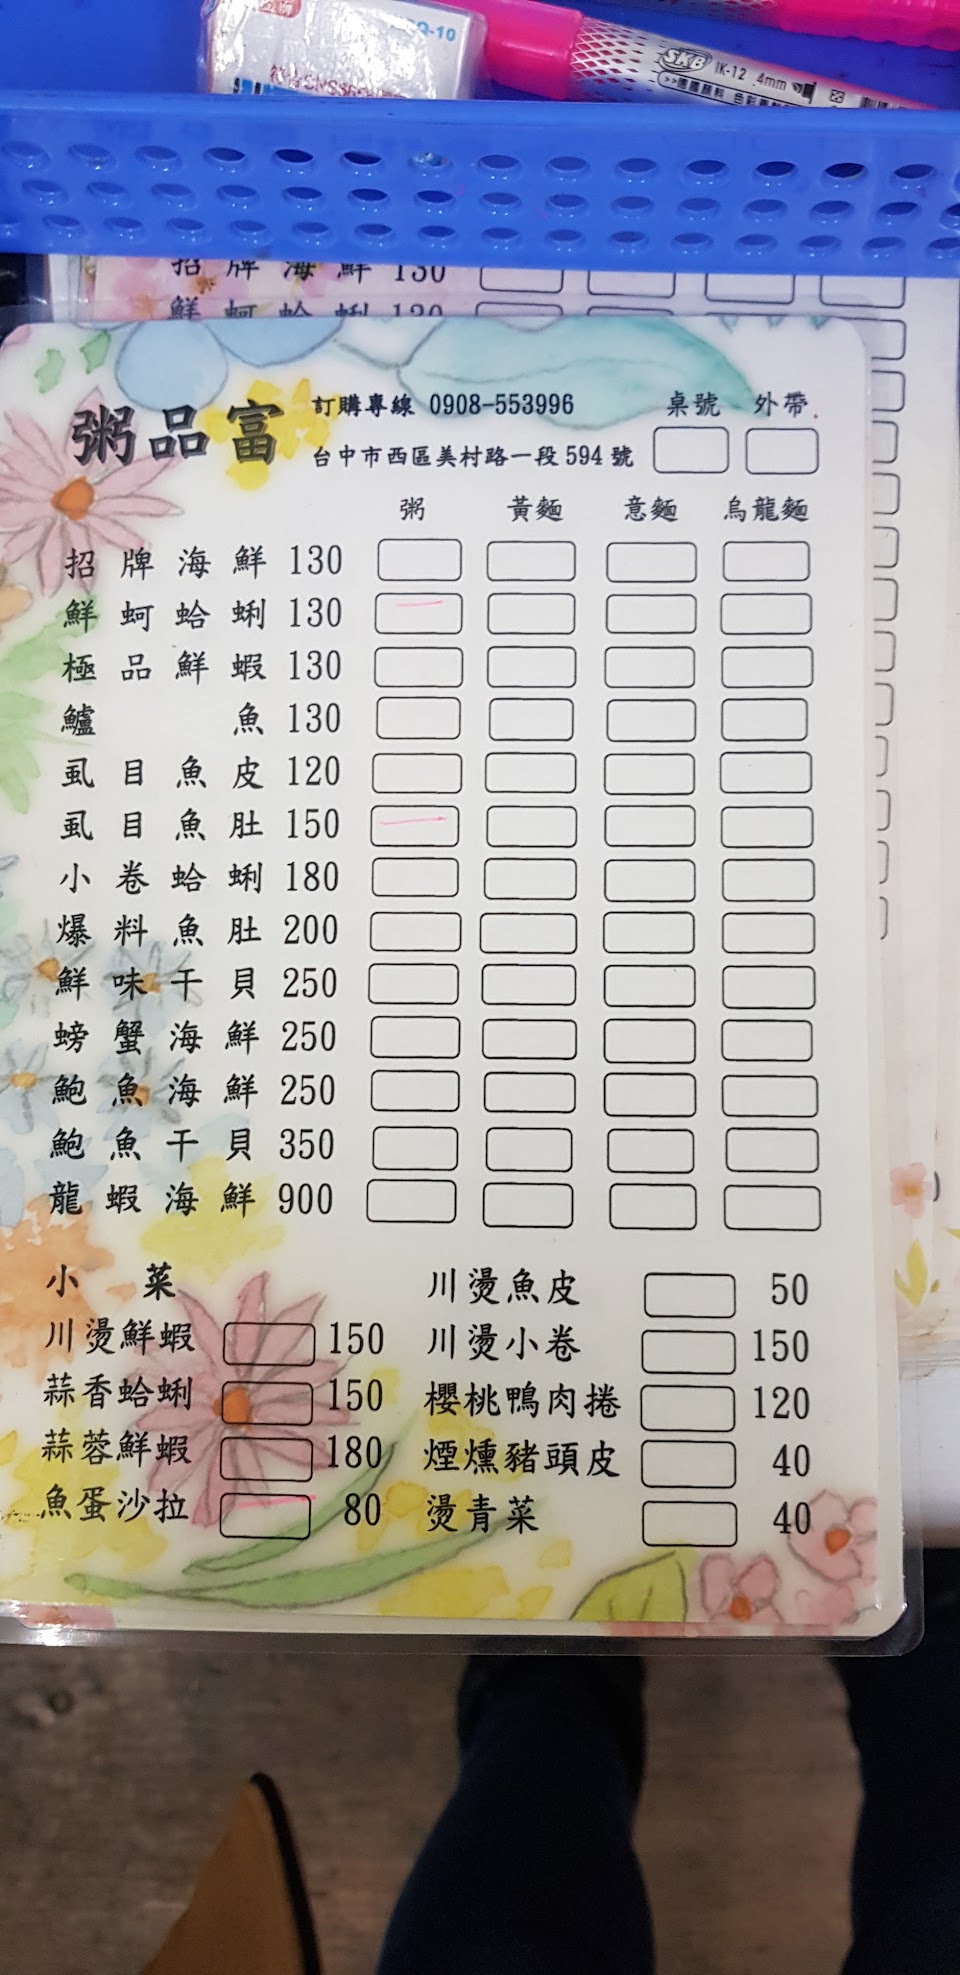 SKB IK-12 4mm
招牌海鮮 130
鮮蚵蛤蜊 130
粥品富 訂購專線 0908-553996 桌號 外帶
台中市西區美村路一段594號
粥 黃麵 意麵 烏龍麵
招牌海鮮 130
鮮蚵蛤蜊 130
極品鮮蝦 130
鱸魚 130
虱目魚皮 120
虱目魚肚 150
小卷蛤蜊 180
爆料魚肚 200
鮮味干貝 250
螃蟹海鮮 250
鮑魚海鮮 250
鮑魚干貝 350
龍蝦海鮮 900
小菜 川燙魚皮 50
川燙鮮蝦 150 川燙小卷 150
蒜香蛤蜊 150 櫻桃鴨肉捲 120
蒜蓉鮮蝦 180 煙燻豬頭皮 40
魚蛋沙拉 80 燙青菜 40